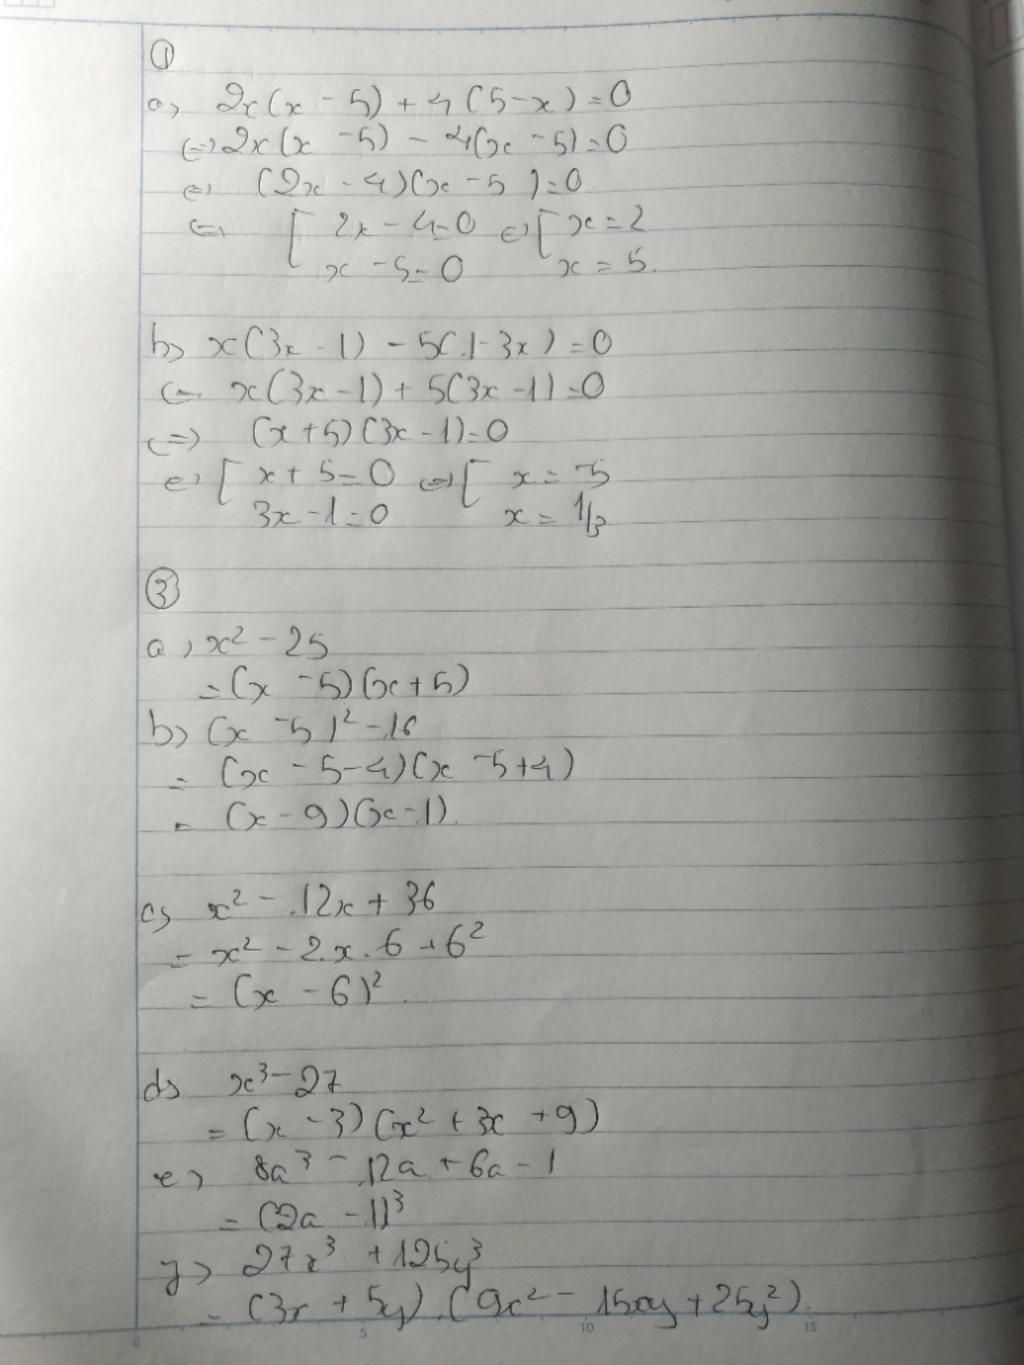 ①
a, 2x(x - 5) + 4(5 - x) = 0
<=> 2x(x - 5) - 4(x - 5) = 0
<=> (2x - 4)(x - 5) = 0
<=> [ 2x - 4 = 0 <=> [ x = 2
x - 5 = 0 x = 5.
b, x(3x - 1) - 5(1 - 3x) = 0
<=> x(3x - 1) + 5(3x - 1) = 0
<=> (x + 5)(3x - 1) = 0
<=> [ x + 5 = 0 <=> [ x = -5
3x - 1 = 0 x = 1/3
③
a, x² - 25
= (x - 5)(x + 5)
b, (x - 5)² - 16
= (x - 5 - 4)(x - 5 + 4)
= (x - 9)(x - 1).
c, x² - 12x + 36
= x² - 2.x.6 + 6²
= (x - 6)².
d, x³ - 27
= (x - 3)(x² + 3x + 9)
e, 8a³ - 12a + 6a - 1
= (2a - 1)³
y, 27x³ + 125y³
= (3x + 5y).(9x² - 15xy + 25y²).
0 5 10 15